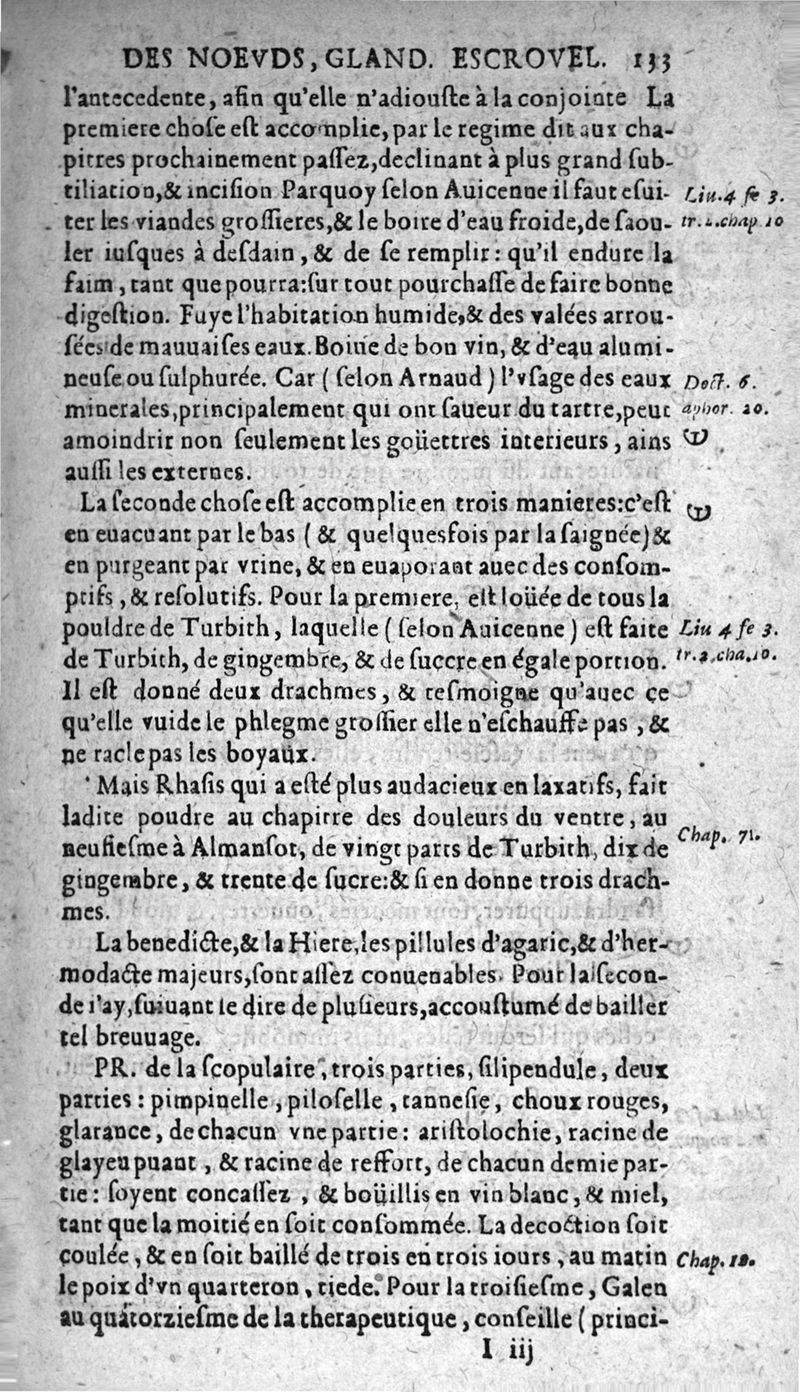 DES NOEVDS, GLAND. ESCROVEL. 133
l'antecedente, afin qu'elle n'adiouſte à la conjointe La
premiere choſe eſt accomplie, par le regime dit aux cha-
pitres prochainement paſſez, declinant à plus grand ſub-
tiliation, & inciſion Parquoy ſelon Auicenne il faut eſui-
Liu. 4 fe 3.
ter les viandes groſſieres, & le boire d'eau froide, de ſaou-
tr. 2. chap 10
ler iuſques à deſdain, & de ſe remplir: qu'il endure la
faim, tant que pourra: ſur tout pourchaſſe de faire bonne
digeſtion. Fuye l'habitation humide, & des valées arrou-
ſées de mauuaiſes eaux. Boiue de bon vin, & d'eau alumi-
neuſe ou ſulphurée. Car (ſelon Arnaud) l'vſage des eaux
Doct. 6.
minerales, principalement qui ont ſaueur du tartre, peut
aphor. 20.
amoindrir non ſeulement les goüettres interieurs, ains
auſſi les externes.
La ſeconde choſe eſt accomplie en trois manieres: c'eſt
en euacuant par le bas (& quelquesfois par la ſaignée) &
en purgeant par vrine, & en euaporant auec des conſom-
ptifs, & reſolutifs. Pour la premiere, eſt loüée de tous la
pouldre de Turbith, laquelle (ſelon Auicenne) eſt faite
Liu 4 fe 3.
de Turbith, de gingembre, & de ſuccre en égale portion.
tr. 2. cha. 10.
Il eſt donné deux drachmes, & teſmoigne qu'auec ce
qu'elle vuide le phlegme groſſier elle n'eſchauffe pas, &
ne racle pas les boyaux.
Mais Rhaſis qui a eſté plus audacieux en laxatifs, fait
ladite poudre au chapitre des douleurs du ventre, au
Chap. 71.
neufieſme à Almanſor, de vingt parts de Turbith, dix de
gingembre, & trente de ſucre: & ſi en donne trois drach-
mes.
La benedicte, & la Hiere, les pillules d'agaric, & d'her-
modacte majeurs, ſont aſſez conuenables. Pour la ſecon-
de i'ay, ſuiuant le dire de pluſieurs, accouſtumé de bailler
tel breuuage.
PR. de la ſcopulaire, trois parties, filipendule, deux
parties: pimpinelle, piloſelle, tanneſie, choux rouges,
glarance, de chacun vne partie: ariſtolochie, racine de
glayeu puant, & racine de reffort, de chacun demie par-
tie: ſoyent concaſſez, & boüillis en vin blanc, & miel,
tant que la moitié en ſoit conſommée. La decoction ſoit
coulée, & en ſoit baillé de trois en trois iours, au matin
Chap. 10.
le poix d'vn quarteron, tiede. Pour la troiſieſme, Galen
au quatorzieſme de la therapeutique, conſeille (princi-
I iij